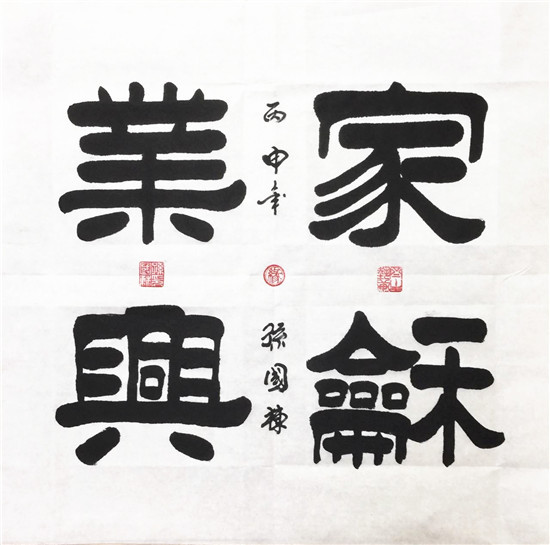 家龢
業興
丙申年
孫國棟